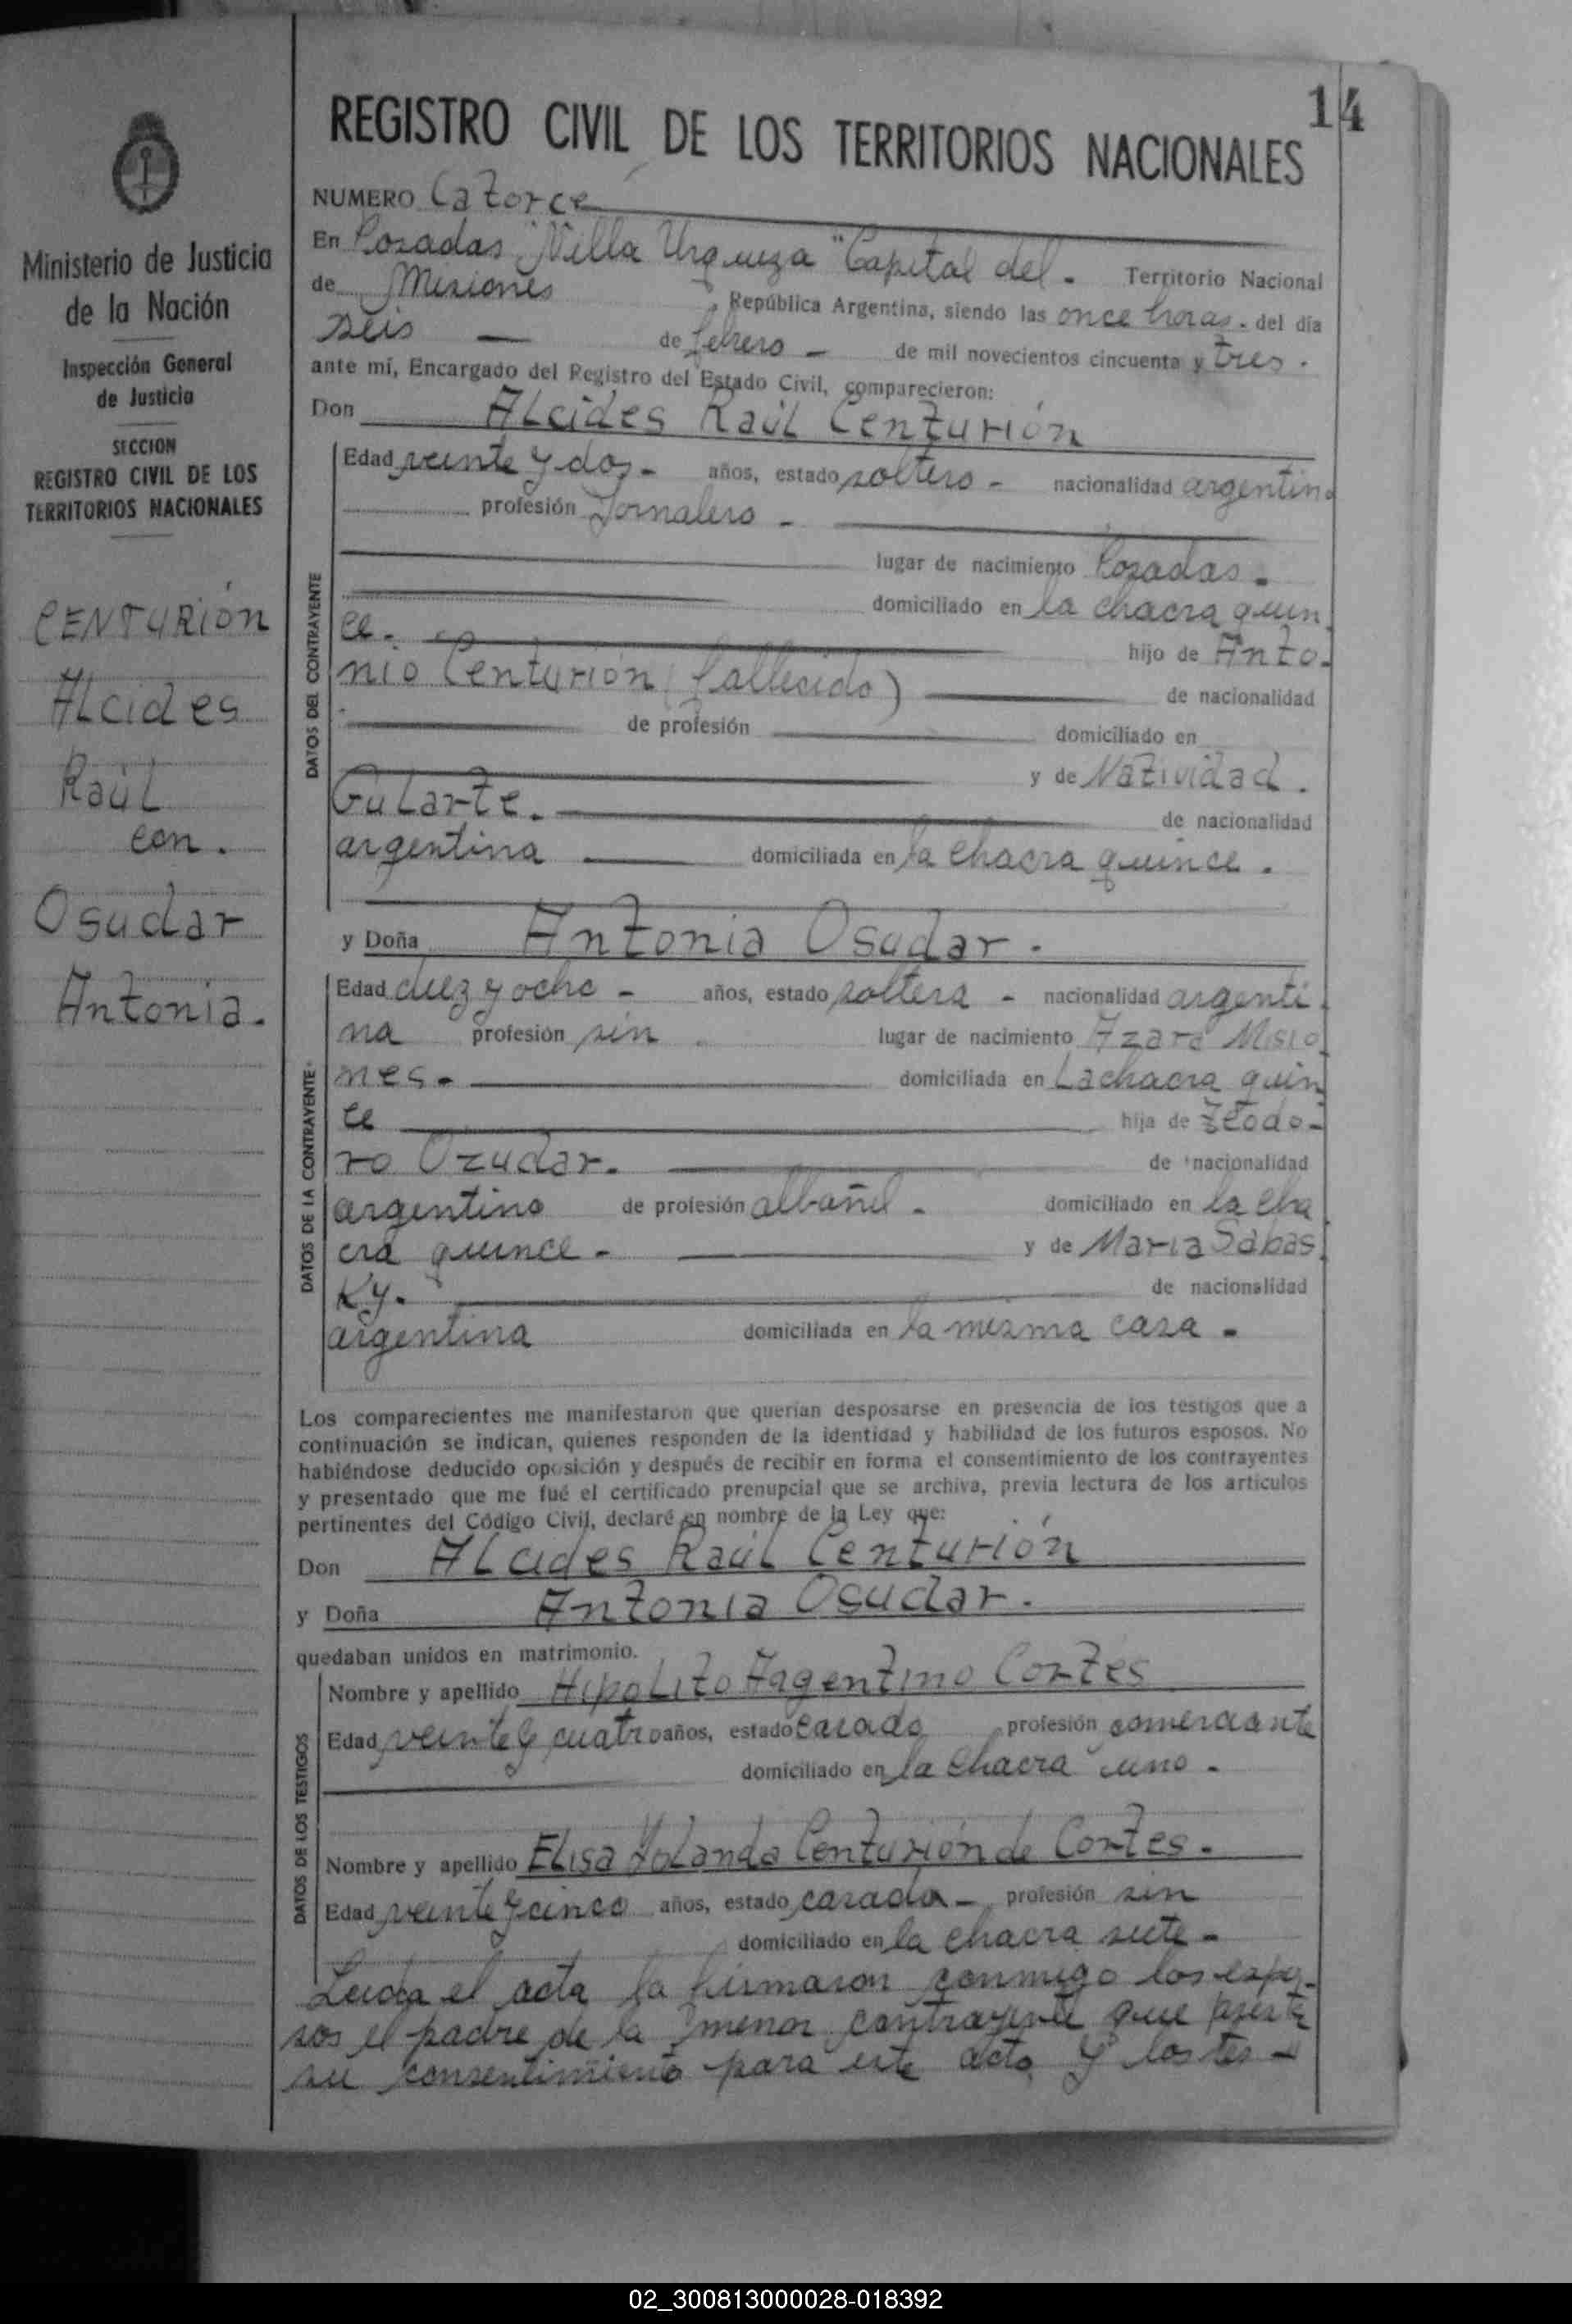 14
REGISTRO CIVIL DE LOS TERRITORIOS NACIONALES
Ministerio de Justicia
de la Nación
Inspección General
de Justicia
SECCION
REGISTRO CIVIL DE LOS
TERRITORIOS NACIONALES
CENTURIÓN
Alcides
Raúl
con.
Osudar
Antonia.
NUMERO Catorce
En Posadas "Villa Urquiza" Capital del - Territorio Nacional
de Misiones, República Argentina, siendo las once horas - del día
seis — de febrero - de mil novecientos cincuenta y tres.
ante mí, Encargado del Registro del Estado Civil, comparecieron:
Don Alcides Raúl Centurión
DATOS DEL CONTRAYENTE
Edad veinte y dos - años, estado soltero - nacionalidad argentino
profesión Jornalero -
lugar de nacimiento Posadas -
domiciliado en la chacra quin
ce. hijo de Anto-
nio Centurión (fallecido) de nacionalidad
de profesión domiciliado en
y de Natividad.
Gularte. de nacionalidad
argentina domiciliada en la chacra quince.
y Doña Antonia Osudar.
DATOS DE LA CONTRAYENTE
Edad diez y ocho - años, estado soltera - nacionalidad argenti-
na profesión sin lugar de nacimiento Azara Misio
nes - domiciliada en La chacra quin
ce hija de Teodo-
ro Ozudar. de nacionalidad
argentino de profesión albañil - domiciliado en la cha
cra quince - y de Maria Sabas
Ky. de nacionalidad
argentina domiciliada en la misma casa -
Los comparecientes me manifestaron que querían desposarse en presencia de los testigos que a
continuación se indican, quienes responden de la identidad y habilidad de los futuros esposos. No
habiéndose deducido oposición y después de recibir en forma el consentimiento de los contrayentes
y presentado que me fué el certificado prenupcial que se archiva, previa lectura de los artículos
pertinentes del Código Civil, declaré en nombre de la Ley que:
Don Alcides Raúl Centurión
y Doña Antonia Osudar.
quedaban unidos en matrimonio.
DATOS DE LOS TESTIGOS
Nombre y apellido Hipolito Argentino Cortes
Edad veinte y cuatro años, estado casado profesión comerciante
domiciliado en la chacra uno -
Nombre y apellido Elisa Yolanda Centurión de Cortes -
Edad veinte y cinco años, estado casada - profesión sin
domiciliado en la chacra siete -
Leida el acta la firmaron conmigo los espo-
sos el padre de la menor contrayente que presta
su consentimiento para este acto y los tes -
02_300813000028-018392